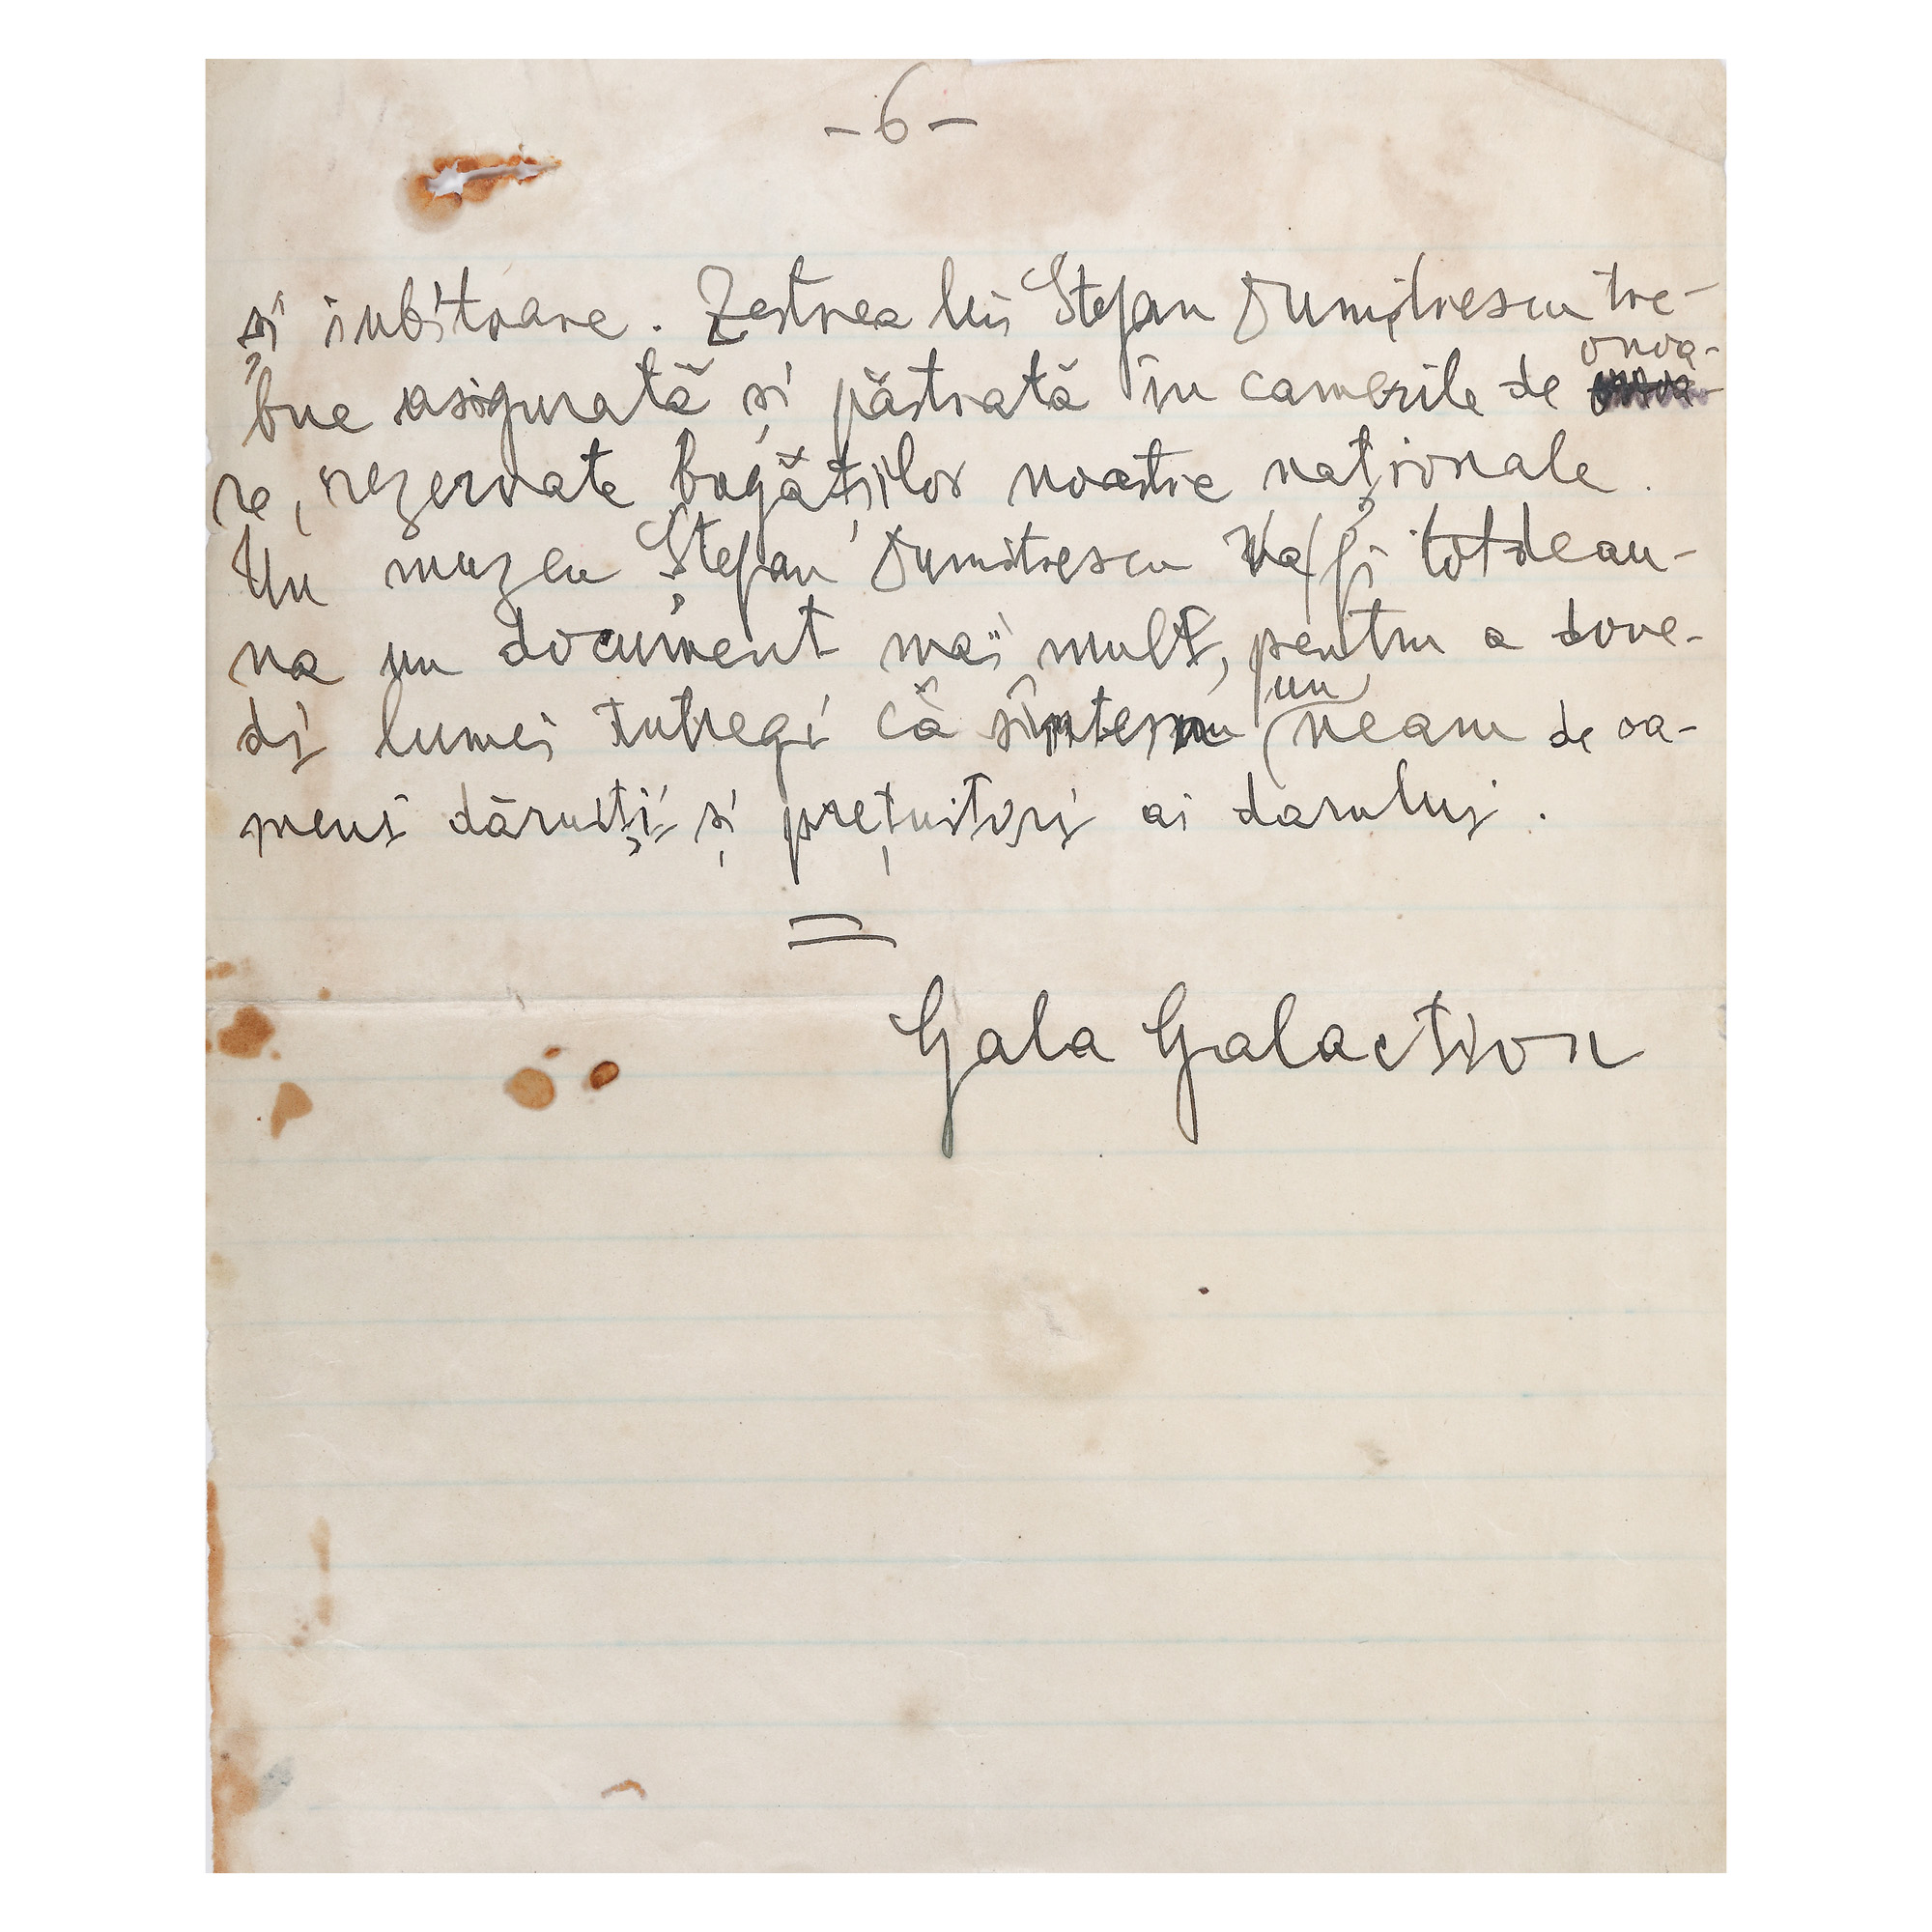 -6-
și iubitoare. Zestrea lui Ștefan Dumitrescu tre-
bue asigurată și păstrată în camerile de onoa-
re, rezervate bogățiilor noastre naționale.
Un muzeu Ștefan Dumitrescu va fi totdeau-
na un document mai mult, pentru a dove-
di lumei întregi că sîntem un neam de oa-
meni dăruiți și prețuitori ai darului.
=
Gala Galaction